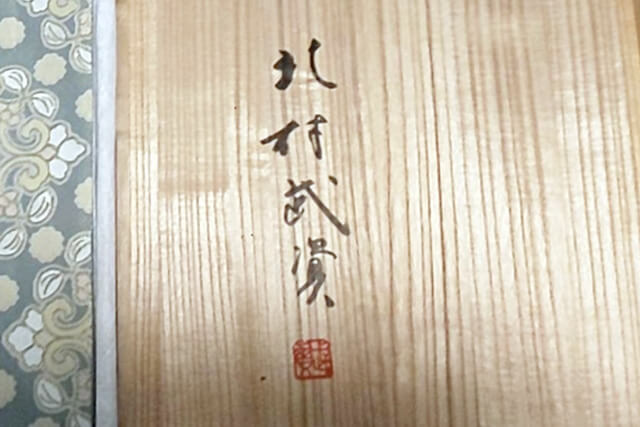 北村武資